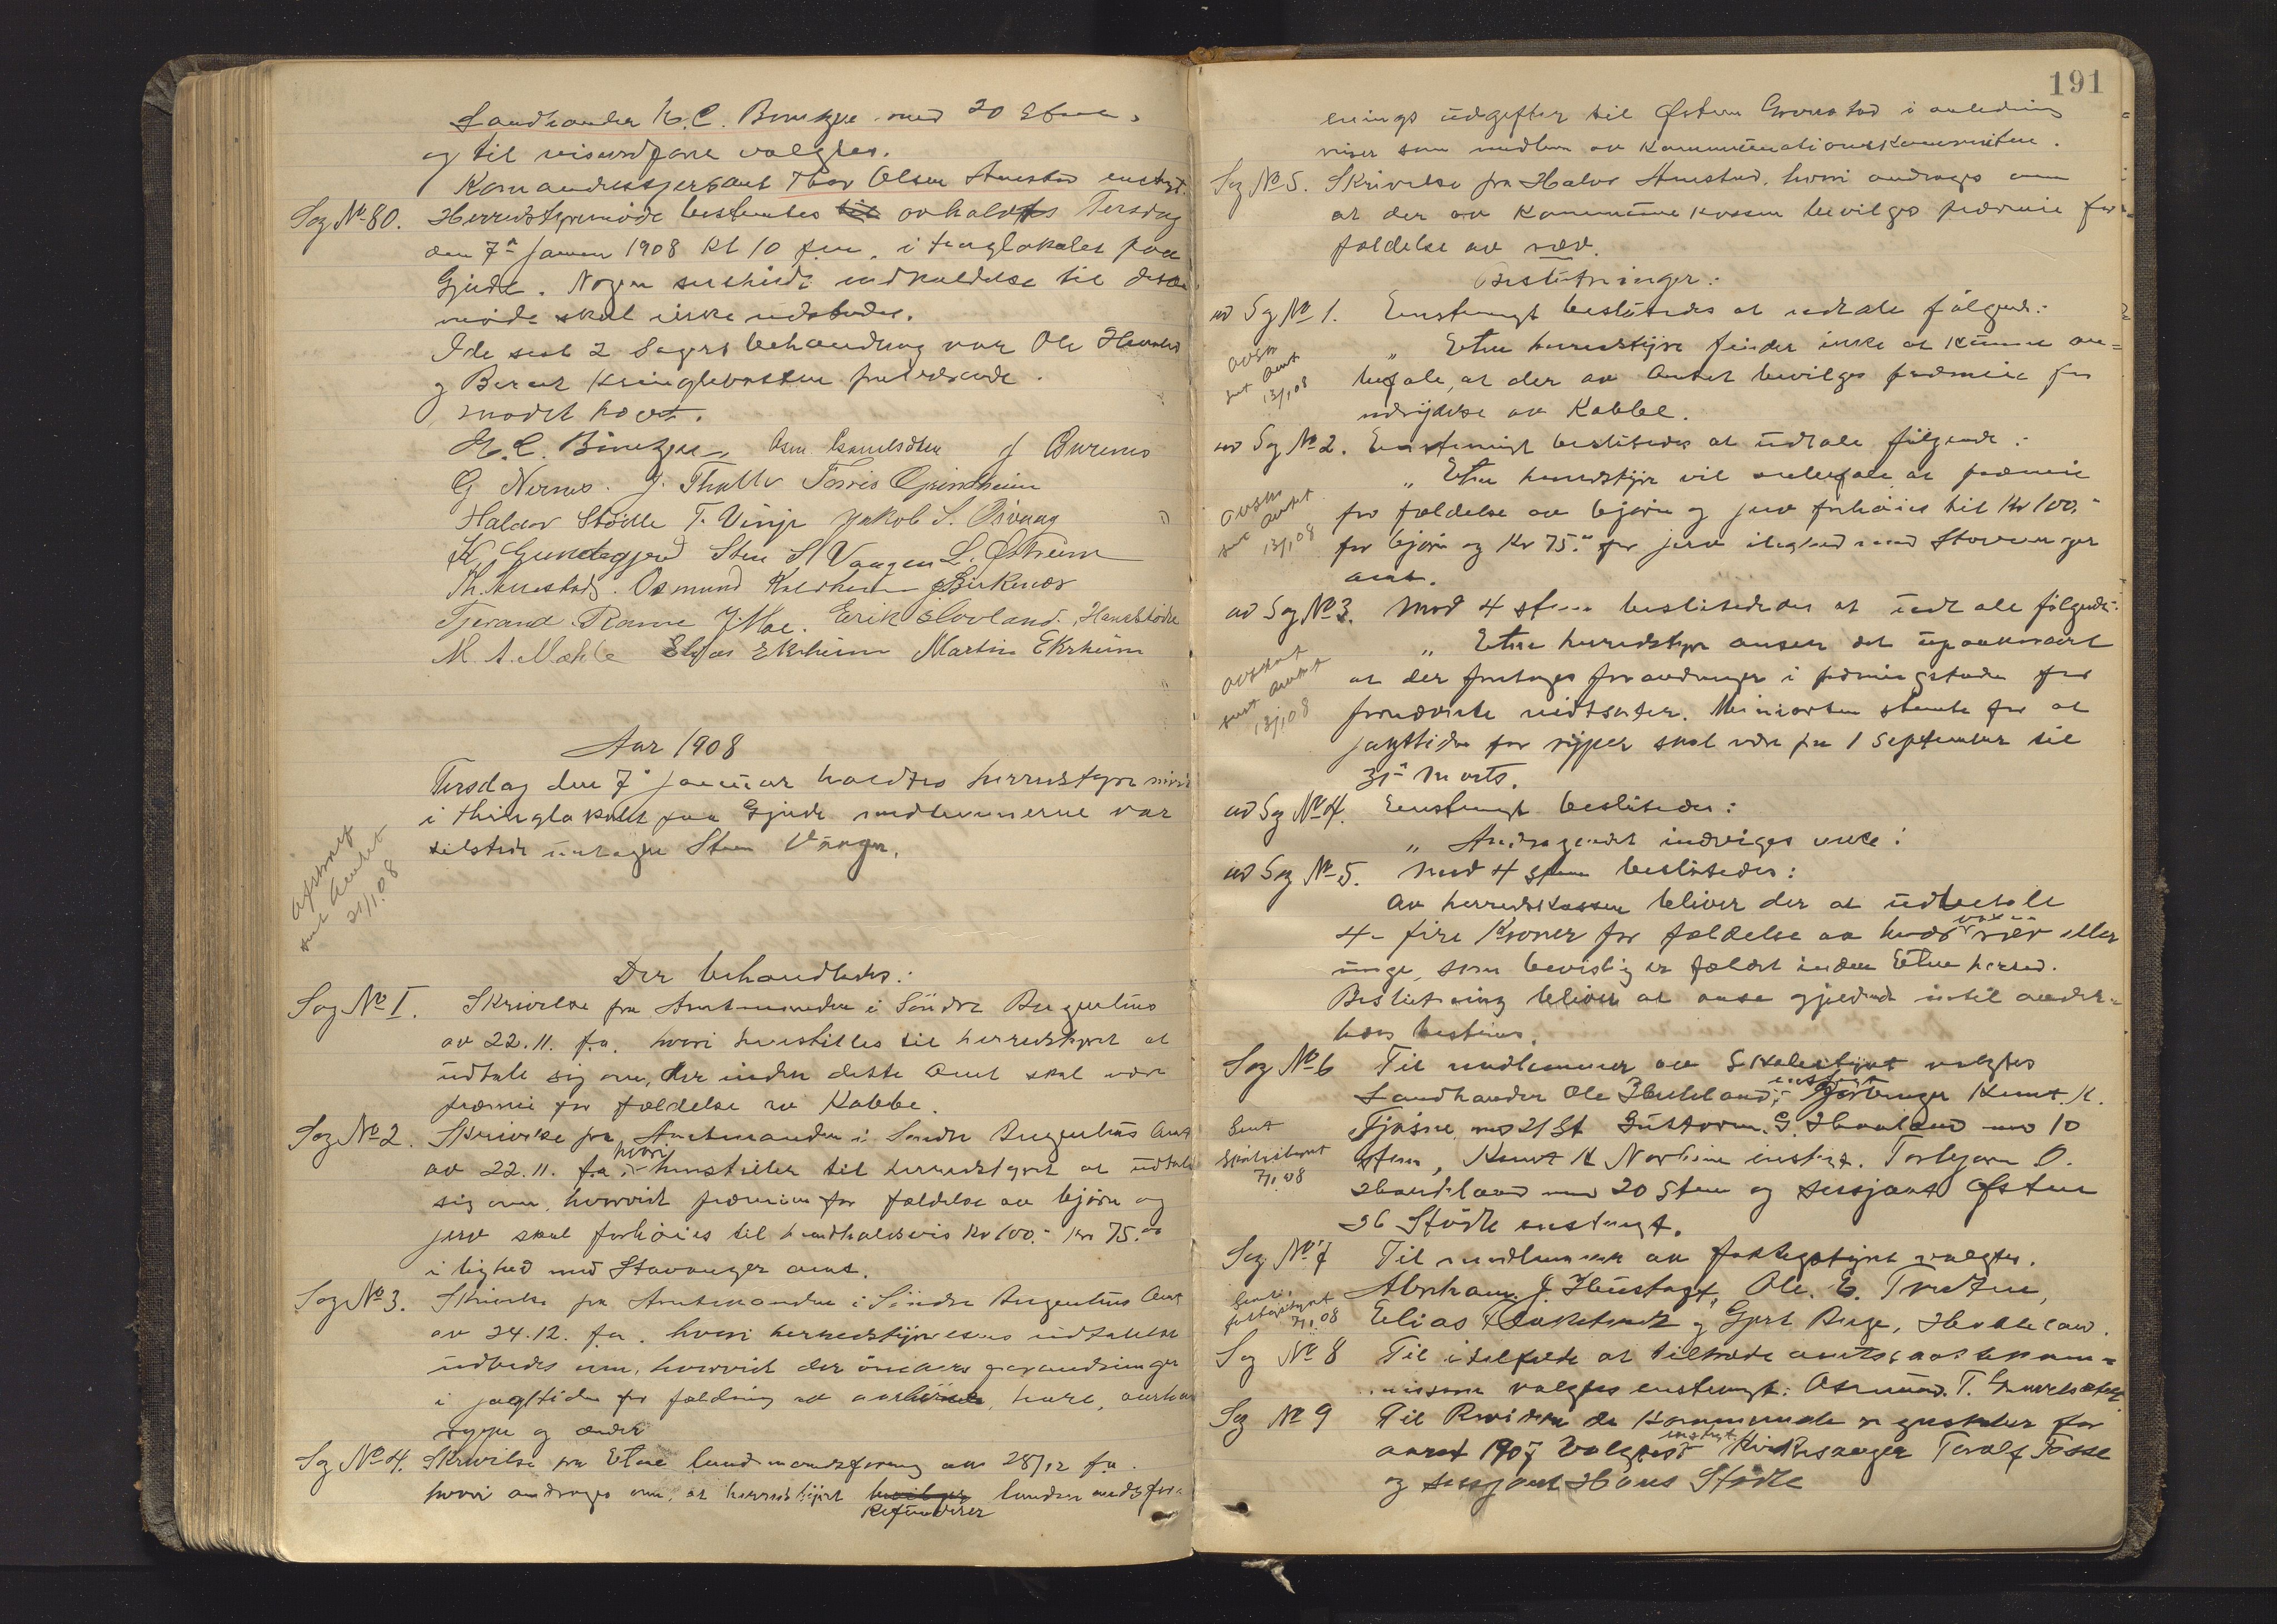 Landhandler H. C. med 20 Stem.
og til viseordfører valgtes.
Kommandersersjant Thor Olsen enstgt.
Sag № 80. Herredstyremøde bestemtes til avholdtes Tirsdag
den 7de Januar 1908 Kl 10 fm. i tinglokalet paa
Gjerde. Nogen indkaldelse til dette
møde skal ikke udstedes.
I de sest 2 Sagers behandling var Ole
og Berent Kringlebotten fraværende.
mødet hævet.
H. C.
G Nernes. J. Thallv Torris Grindheim
Haldor Stødle T. Vinje Jakob S. Osvaag
K Gundegjerd Sten S Vaagen L. Østreim
Th. Osmund J Birkenes
Tjerand Ramne J Moe. Erik Hovland. Hans Stødle
M. A. Mæhle Elias Ekrheim Martin Ekrheim
Aar 1908
Tirsdag den 7de Januar holdtes herredstyremøde
i thinglokalet paa Gjerde medlemmerne var
tilstede undtagen Sten Vaagen.
Afskrevet
sent Amtet
21/1.08
Der behandledes:
Sag № I. Skrivelse fra Amtmanden i Søndre Bergenhus
av 22.11. f.a. hvori henstilles til herredstyret at
udtale sig om, der inden dette Amt skal være
præmie for fældelse av Kobbe.
Sag № 2. Skrivelse fra Amtmanden i Søndre Bergenhus Amt
av 22.11. f.a. hvori henstilles til herredstyret at udtale
sig om, hvorvidt præmien for fældelse av bjørn og
jerv skal forhøies til henholdsvis Kr 100.- kr 75.00
i lighed med Stavanger amt.
Sag № 3. Skrivelse fra Amtmanden i Søndre Bergenhus Amt
av 24.12. f.a. hvori herredstyrelsens udtalelse
udbedes om, hvorvidt der ønskes forandringer
i jagttiden for fældning av aarhøne, hare, aarhane
rype og ænder
Sag № 4. Skrivelse fra Etne landmandsforening av 28/12 f.a.
hvori andrages om, at herredstyret bevilger landmandsfor=
Refunderer
191
enings udgifter til Østen i anledning
reiser som medlem av Kommunikationskomiteen.
Sag № 5. Skrivelse fra Halvor hvori andrages om
at der av Kommunekassen bevilges præmie for
fældelse av ræv.
Beslutninger:
ad Sag № 1. Enstemmigt besluttedes at udtale følgende:
" Etne herredstyre finder ikke at kunne an=
befale, at der av Amtet bevilges præmie for
udryddelse av Kobbe.
avskr
sent Amt
13/1 08
ad Sag № 2. Enstemmigt besluttedes at udtale følgende:
" Etne herredstyre vil anbefale at præmie
for fældelse av bjørn og jerv forhøies til Kr 100.-
for bjørn og Kr 75.00 for jerv i lighed med Stavanger
amt.
avskr
sent Amtet
13/1 08
ad Sag № 3. Mod 4 stem besluttedes at udtale følgende:
" Etne herredstyre anser det upaakrævet
at der foretages forandringer i fredningstiden for
fornævnte vildtsorter. Minioriteten stemte for at
jagttiden for ryper skal være fra 1 September til
31te Marts.
avskrevet
sent amtet
13/1 08
ad Sag № 4. Enstemmigt besluttedes:
" Andragendet indvilges ikke:
ad Sag № 5. Mod 4 stem besluttedes:
Av herredskassen bliver der at udbetale
4- fire Kroner for fældelse av hver voxen ræv eller
unge, som bevislig er fældet inden Etne herred.
Beslutning bliver at anse gjældende indtil ander=
ledes bestemmes.
Sag № 6 Til medlemmer av Skolestyret valgtes
Landhandler Ole enstemt. Knut K.
Fjøsne med 21 St Guttorm G. Haaland med 10
stem, Knut K Norheim enstgt. Torbjørn O.
med 20 Stem og sersjant Østen
Stødle enstemmigt.
Sent
skolestyret
7/1 08
Sag № 7 Til medlemmer av fattigstyret valgtes.
Abraham J. Ole. E. Tveten,
Elias og Gjert Berge,
Sent
fattigstyret
7/1 08
Sag № 8 Til i tilfælde at tiltræde amtsskattekom=
missionen valgtes enstemmigt: Osmund T.
Sag № 9 Til Revidering de Kommunale regnskaber for
aaret 1907 valgtes enstgt. Kirkesanger Toralf Fosse
og sersjant Hans Stødle